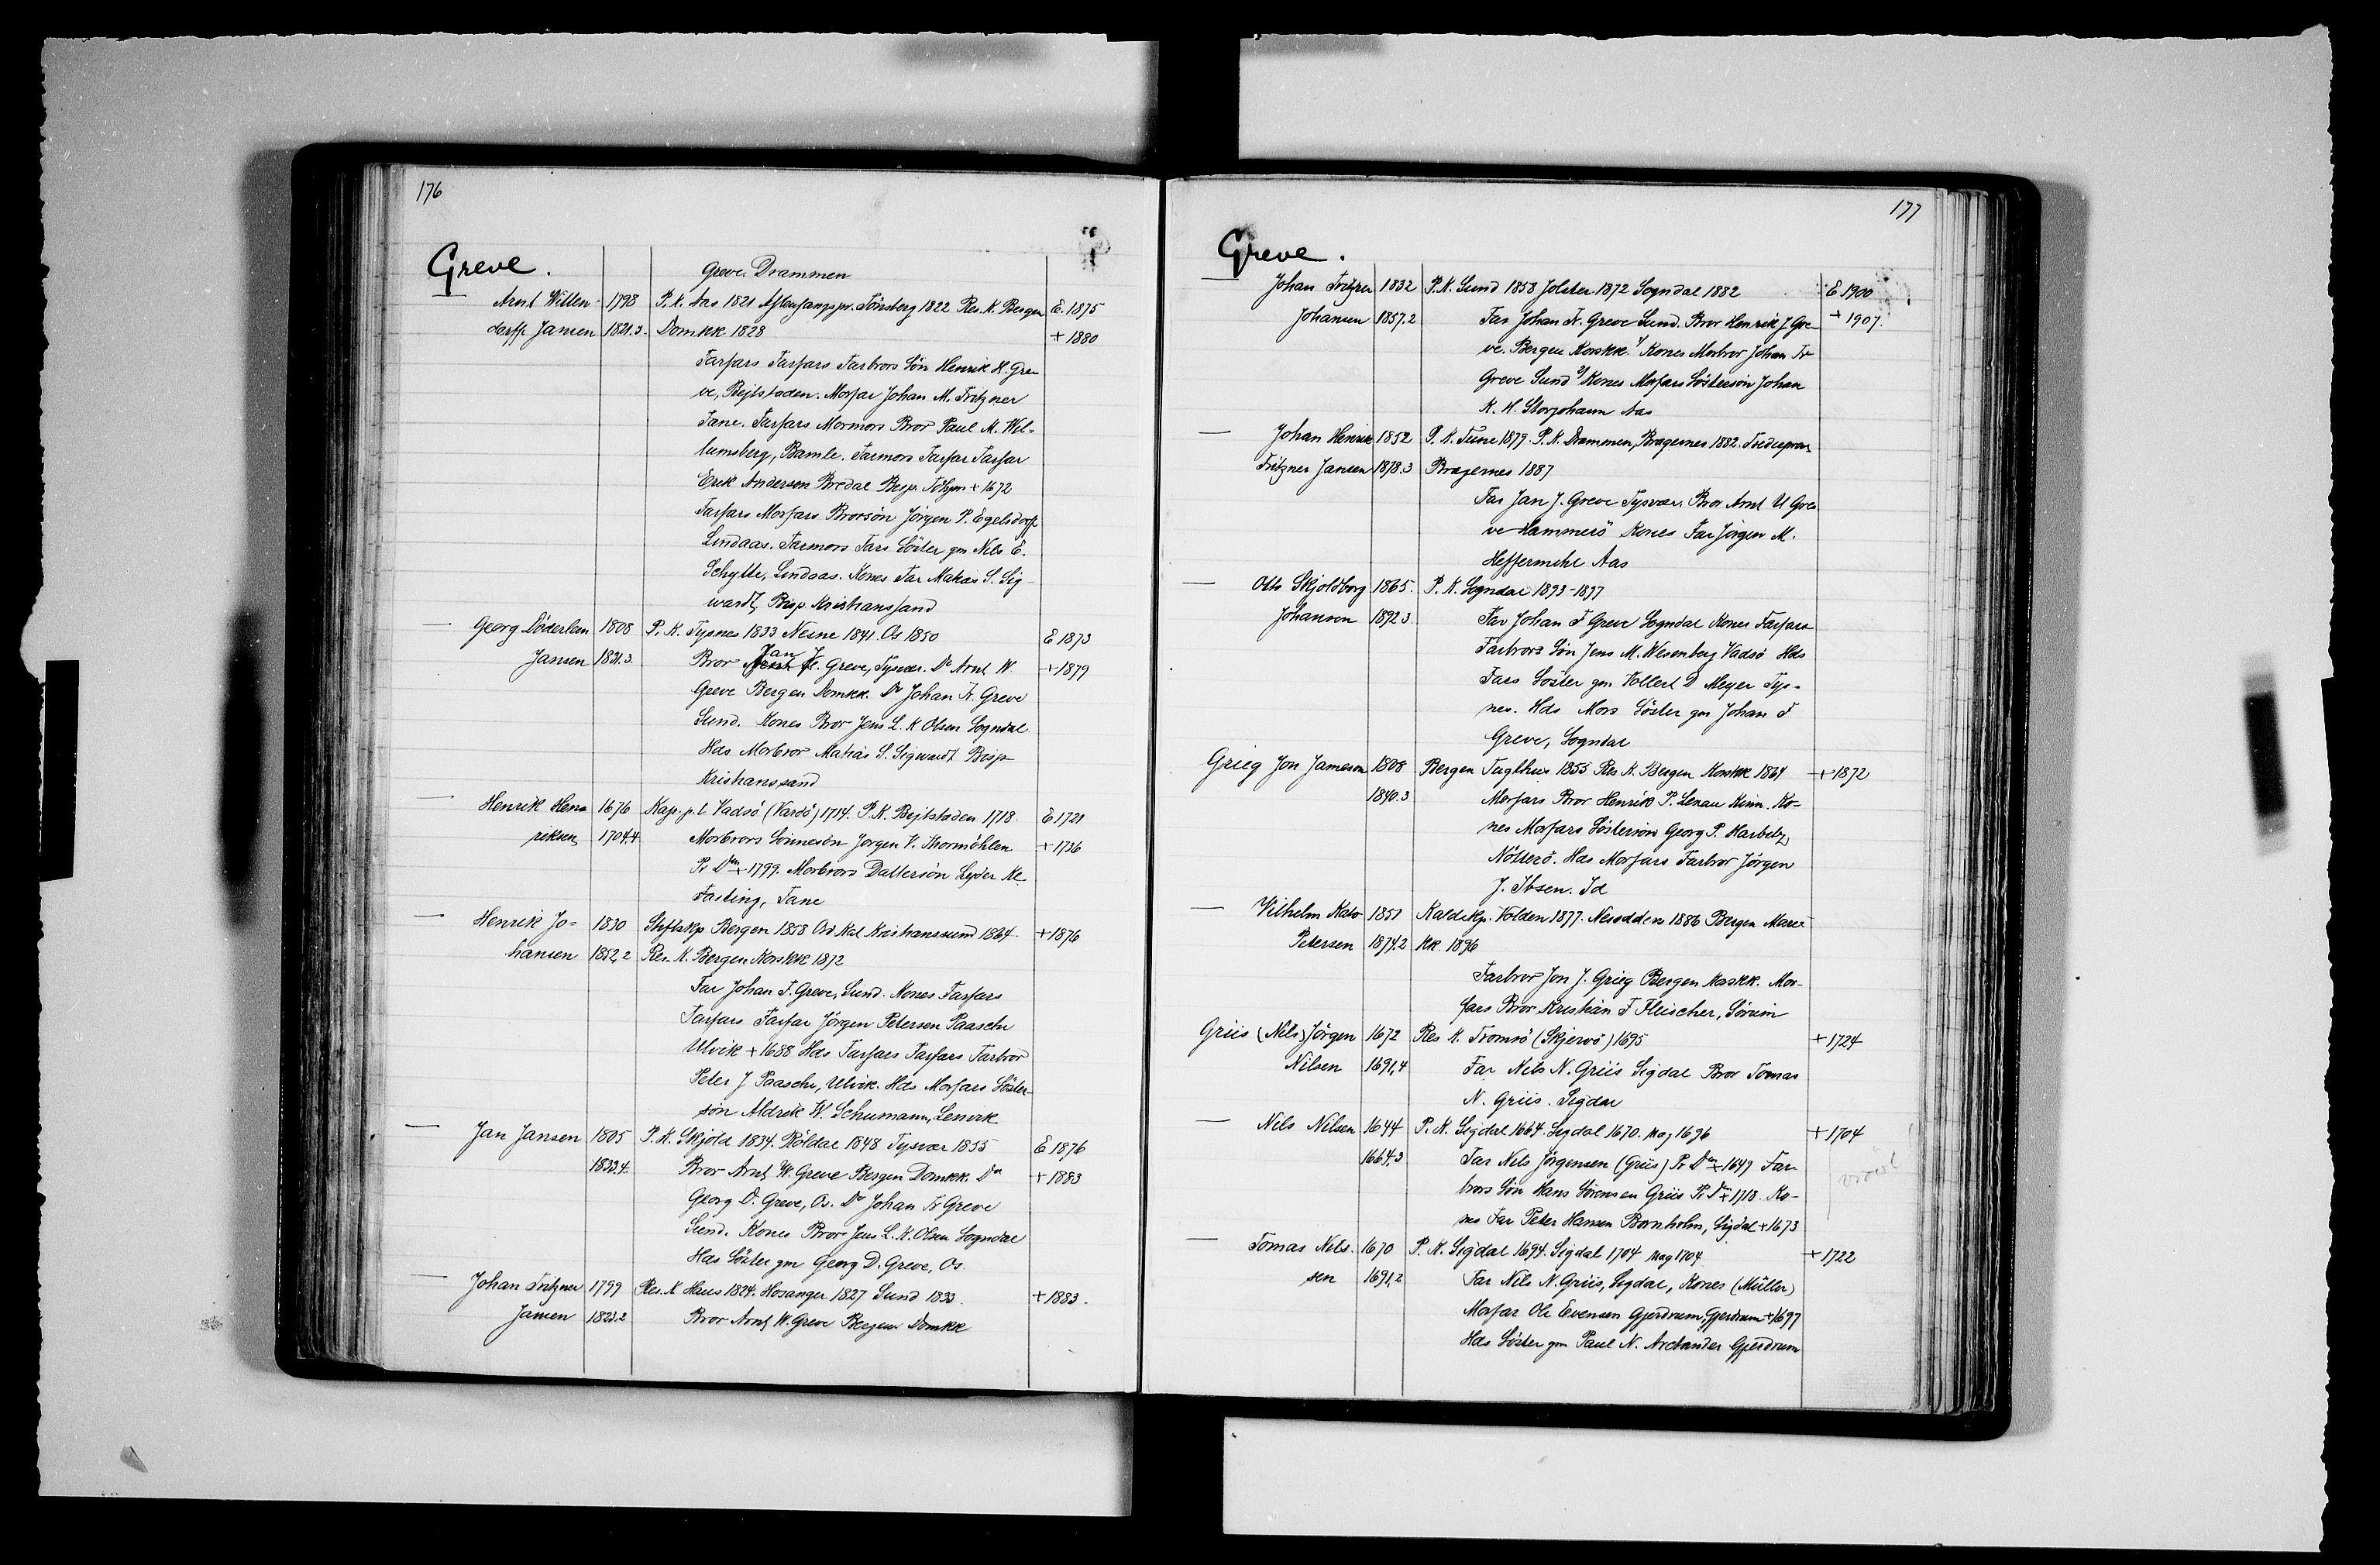 176
Greve.
Greve Drammen
Arnt Willen- 1798 P. K. Aas 1821 Aftensangspr. Tönsberg 1822 Res. K. Bergen E. 1875
dorff Jansen 1821.3. Domkk 1828 + 1880
Farfars Farfars Farbrors Sön Henrik H. Gre
ve, Bejtstaden. Morfar Johan M. Fritzner
Tane. Farfars Mormors Bror Paul M. Wil-
lumsberg, Bamle. Farmors Farfar Farfar
Erik Andersen Bredal Bisp Tdhjm + 1672
Farfars Morfars Brorsön Jörgen P. Egelsdorff
Lindaas. Farmors Fars Söster gm Nels E.
Schytte, Lindaas. Kones Far Matias S. Sig
wardt, Bisp Kristianssand
— Georg Döderlein 1808 P. K. Tysnes 1833 Nesne 1841. Os 1850 E 1873
Jansen 1831.3. Bror Jan J. Greve, Tysvær. Do Arnt W. + 1879
Greve Bergen Domkk. Do Johan Fr. Greve
Sund. Kones Bror Jens L. K Olsen Sogndal
Hds Morbror Matias S. Sigwardt Bisp
Kristianssand
— Henrik Hen- 1676 Kap. p. l. Vadsö (Vardö) 1714. P. K. Bejtstaden 1718. E 1721
riksen 1704.4 Morbrors Sönnesön Jörgen V. Thormöhlen + 1736
Pr Dmn + 1799. Morbrors Dattersön Lyder Kl.
Fasting, Tane
— Henrik Jo- 1830 Stiftskp Bergen 1858 Ord Kat Kristianssund 1864 + 1876
hansen 1852,2 Res. K. Bergen Korskk 1872
Far Johan F. Greve, Sund. Kones Farfars
Farfars Farfar Jörgen Petersen Paasche
Ulvik + 1688 Hds Farfars Farfars Farbror
Peter J Paasche, Ulvik. Hds Morfars Söster-
sön Aldrik W. Schumann, Lenvik
— Jan Jansen 1805 P. K. Skjold 1834. Röldal 1848 Tysvær 1855 E 1876
1832.4. Bror Arnt W. Greve Bergen Domkk. Do + 1883
Georg D. Greve, Os. Do Johan Fr Greve
Sund. Kones Bror Jens L. K. Olsen Sogndal
Hds Söster gm Georg D. Greve, Os.
— Johan Fritzner 1799 Res. K Haus 1824. Hosanger 1827 Sund 1833. + 1883.
Jansen 1822.2 Bror Arnt W. Greve Bergen Domkk
177
Greve.
Johan Fritzner 1832 P. K. Sund 1858 Jölster 1872 Sogndal 1882 E 1900
Johansen 1857.2 Far Johan Fr. Greve Sund. Bror Henrik J. Gre- + 1907.
ve. Bergen Korskk. 1/ Kones Morbror Johan Fr
Greve Sund 2/ Kones Morfars Söstersön Johan
K. H. Storjohann Aas
— Johan Henrik 1852 P. K. Tune 1879. P. K. Drammen, Bragernes 1882.
Fritzner Jansen 1878.3 Bragernes 1887
Far Jan J. Greve Tysvær. Bror Arnt U Gre
ve Hammerö Kones Far Jörgen M.
Heffermehl Aas
— Otto Skjoldborg 1865. P. K. Sogndal 1893-1897
Johansen 1892 3. Far Johan F Greve Sogndal Kones Farfars
Farbrors Sön Jens M. Wesenberg Vadsö Hds
Fars Söster gm Vollert D Meyer Tys-
nes. Hds Mors Söster gm Johan F
Greve, Sogndal
Grieg Jon Jameson 1808 Bergen Tugthus 1855 Res K. Bergen Korskk 1864 + 1872
1840.3 Morfars Bror Henrik P. Lenau Kinn. Ko-
nes Morfars Söstersön Georg P. Harbitz
Nötterö. Hds Morfars Farbror Jörgen
J. Ibsen. Id
— Vilhelm Kato 1851 Kaldskp. Volden 1877. Nesodden 1886 Bergen Marie
Petersen 1874.2 kk 1896
Farbror Jon J. Grieg Bergen Korskk. Mor-
fars Bror Kristian F Fleischer, Sörum
Griis (Nils) Jörgen 1672 Res K. Tromsö (Skjervö) 1695 + 1724
Nilsen 1691,4 Far Nils N. Griis Sigdal Bror Tomas
N. Griis. Sigdal
— Nils Nilsen 1644 P. K. Sigdal 1664. Sigdal 1670. Mag 1696 + 1704
1664,3 Far Nils Jörgensen (Griis) Pr Dmn + 1647 Far-
brors Sön Hans Sörensen Griis Pr Dmn + 1718. Ko-
nes Far Peter Hansen Bornholm, Sigdal + 1673
— Tomas Nils- 1670 P. K. Sigdal 1694. Sigdal 1704 Mag 1704 + 1722
sen 1691,2 Far Nils N. Griis, Sigdal, Kones (Müller)
Morfar Ole Evensen Gjerdrum, Gjerdrum + 1697
Hds Söster gm Paul N. Arctander Gjerdrum